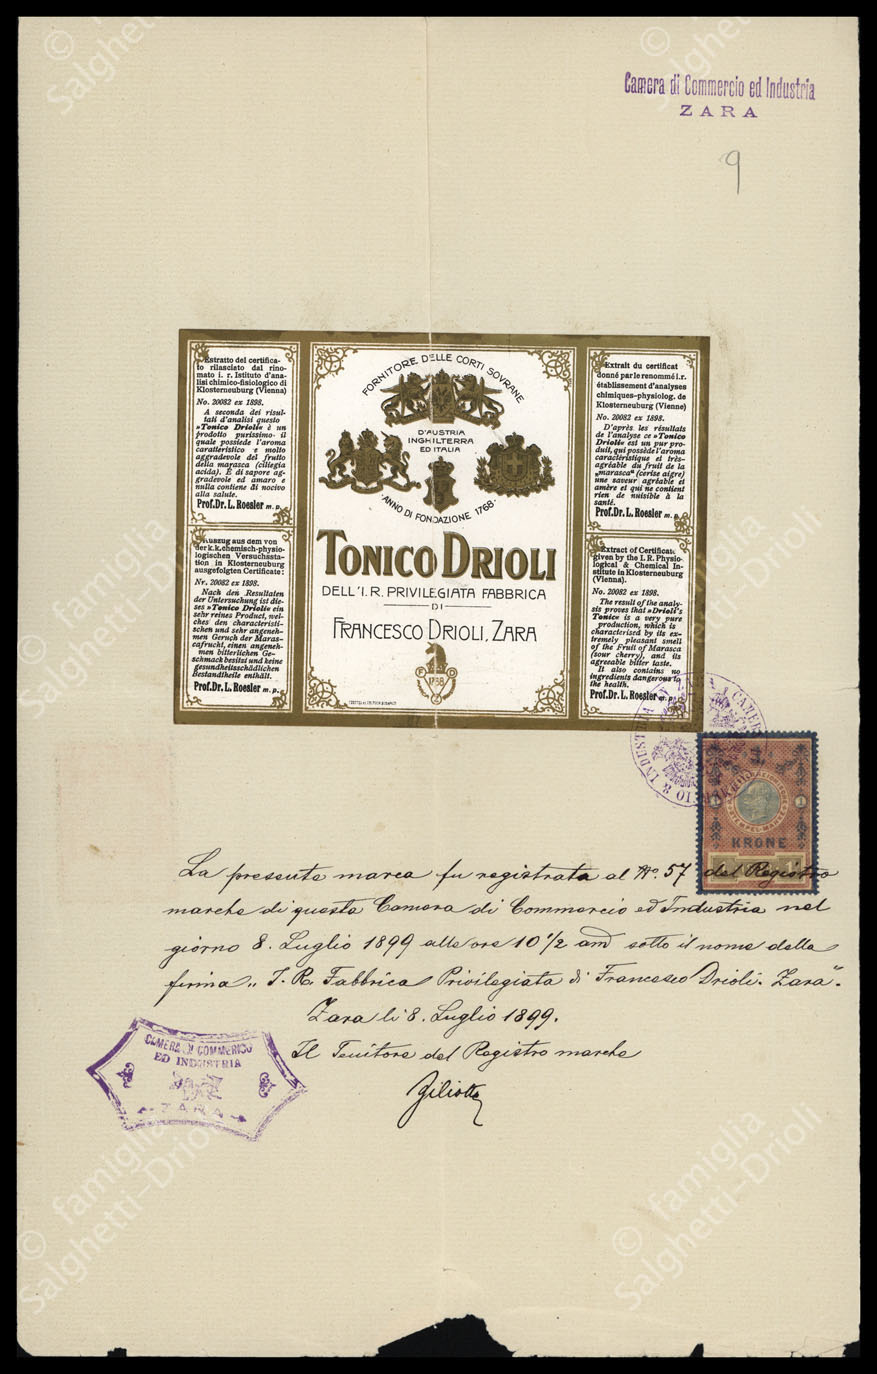 © famiglia
Salghetti-Drioli
Camera di Commercio ed Industria
ZARA
9
Estratto del certifica-
to rilasciato dal rino-
mato i. r. Istituto d'ana-
lisi chimico-fisiologico di
Klosterneuburg (Vienna)
No. 20082 ex 1898.
A seconda dei risul-
tati d'analisi questo
»Tonico Drioli« è un
prodotto purissimo il
quale possiede l'aroma
caratteristico e molto
aggradevole del frutto
della marasca (ciliegia
acida). È di sapore ag-
gradevole ed amaro e
nulla contiene di nocivo
alla salute.
Prof. Dr. L. Roesler m. p.
Auszug aus dem von
der k. k. chemisch-physio-
logischen Versuchssta-
tion in Klosterneuburg
ausgefolgten Certificate:
Nr. 20082 ex 1898.
Nach den Resultaten
der Untersuchung ist die-
ses »Tonico Drioli« ein
sehr reines Product, wel-
ches den characteristi-
schen und sehr angeneh-
men Geruch der Maras-
cafrucht, einen angeneh-
men bitterlichen Ge-
schmack besitzt und keine
gesundheitsschädlichen
Bestandtheile enthält.
Prof. Dr. L. Roesler m. p.
FORNITORE DELLE CORTI SOVRANE
D'AUSTRIA
INGHILTERRA
ED ITALIA
·ANNO DI FONDAZIONE 1768·
TONICO DRIOLI
DELL'I. R. PRIVILEGIATA FABBRICA
DI
FRANCESCO DRIOLI, ZARA
F D
1768
Extrait du certificat
donné par le renommé i. r.
établissement d'analyses
chimiques-physiolog. de
Klosterneuburg (Vienne)
No. 20082 ex 1898.
D'après les résultats
de l'analyse ce »Tonico
Drioli« est un pur pro-
duit, qui possède l'aroma
caracteristique et très-
agréable du fruit de la
„marasca" (cerise aigre)
une saveur agréable et
amère et qui ne contient
rien de nuisible à la
santé.
Prof. Dr. L. Roesler m. p.
Extract of Certificate
given by the I. R. Physio-
logical & Chemical In-
stitute in Klosterneuburg
(Vienna).
No. 20082 ex 1898.
The result of the analy-
sis proves that »Drioli's
Tonic« is a very pure
production, which is
characterised by its ex-
tremely pleasant smell
of the Fruit of Marasca
(sour cherry), and its
agreeable bitter taste.
It also contains no
ingredients dangerous to
the health.
Prof. Dr. L. Roesler m. p.
STEMPEL-MARKE
1 1
KRONE
La presente marca fu registrata al No. 57 del Registro
marche di questa Camera di Commercio ed Industria nel
giorno 8. Luglio 1899 alle ore 10 1/2 am sotto il nome della
firma „I. R. Fabbrica Privilegiata di Francesco Drioli. Zara".
Zara li 8. Luglio 1899.
Il Tenitore del Registro marche
Ziliotto
CAMERA DI COMMERCIO
ED INDUSTRIA
ZARA